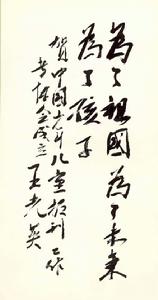 為了祖國為了未來
為了孩子
賀中国少年儿童报刊工作
者协会成立 王光英